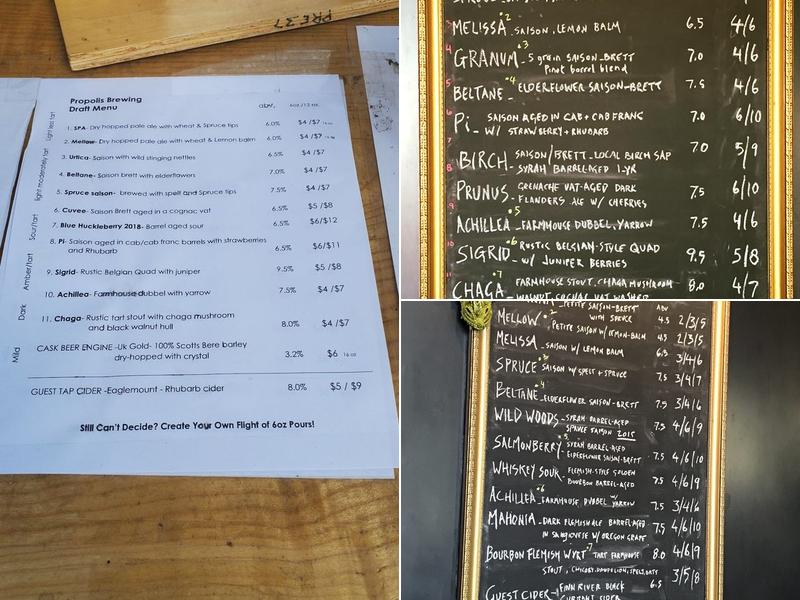 PRE 37
Propolis Brewing
Draft Menu
abv. 6oz/12 oz.
Light less tart
1. SPA- Dry hopped pale ale with wheat & Spruce tips 6.0% $4 /$7 16 oz
2. Mellow- Dry hopped pale ale with wheat & Lemon balm 6.0% $4 /$7 16 oz
3. Urtica- Saison with wild stinging nettles 6.5% $4 /$7
light moderately/tart
4. Beltane- Saison brett with elderflowers 7.0% $4 /$7
5. Spruce saison- brewed with spelt and Spruce tips 7.5% $4 /$7
6. Cuvee- Saison Brett aged in a cognac vat 6.5% $5 /$8
Sour/tart
7. Blue Huckleberry 2018- Barrel aged sour 6.5% $6/$12
8. Pi- Saison aged in cab/cab franc barrels with strawberries
and Rhubarb 6.5% $6/$11
Amber/tart
9. Sigrid- Rustic Belgian Quad with juniper 9.5% $5 /$8
10. Achillea- Farmhouse dubbel with yarrow 7.5% $4 /$7
Dark
11. Chaga- Rustic tart stout with chaga mushroom
and black walnut hull 8.0% $4 /$7
Mild
CASK BEER ENGINE -Uk Gold- 100% Scotts Bere barley
dry-hopped with crystal 3.2% $6 16 oz
GUEST TAP CIDER -Eaglemount - Rhubarb cider 8.0% $5 / $9
Still Can't Decide? Create Your Own Flight of 6oz Pours!
MELISSA *2 - SAISON, LEMON BALM 6.5 4/6
GRANUM *3 - 5 grain SAISON-BRETT 7.0 4/6
Pinot barrel blend
BELTANE *4 - ELDERFLOWER SAISON-BRETT 7.5 4/6
Pi - SAISON AGED IN CAB + CAB FRANC 7.0 6/10
W/ STRAWBERRY + RHUBARB
BIRCH - SAISON/BRETT - LOCAL BIRCH SAP 7.0 5/9
SYRAH BARREL-AGED 1-YR
PRUNUS - GRENACHE VAT-AGED DARK 7.5 6/10
FLANDERS ALE W/ CHERRIES
ACHILLEA *5 - FARMHOUSE DUBBEL, YARROW 7.5 4/6
SIGRID *6 - RUSTIC BELGIAN-STYLE QUAD 9.5 5/8
W/ JUNIPER BERRIES
CHAGA *7 - FARMHOUSE STOUT, CHAGA MUSHROOM 8.0 4/7
WALNUT, COGNAC VAT
PETITE SAISON-BRETT ABV
WITH SPRUCE 4.5 2/3/5
MELLOW *2 - PETITE SAISON W/ LEMON-BALM 4.5 2/3/5
MELISSA - SAISON W/ LEMON BALM 6.5 3/4/6
SPRUCE *3 - SAISON W/ SPELT + SPRUCE 7.5 3/4/7
BELTANE *4 - ELDERFLOWER SAISON-BRETT 7.5 3/4/6
WILD WOODS - SYRAH BARREL-AGED 7.5 4/6/9
SPRUCE SAISON 2015
SALMONBERRY *5 - SYRAH BARREL-AGED
ELDERFLOWER SAISON-BRETT 7.5 4/6/10
WHISKEY SOUR - FLEMISH-STYLE GOLDEN
BOURBON BARREL-AGED 7.5 4/6/9
ACHILLEA *6 - FARMHOUSE DUBBEL W/ YARROW 7.5 3/4/6
MAHONIA - DARK FLEMISH ALE BARREL-AGED 7.5 4/6/10
IN SANGIOVESE W/ OREGON GRAPE
BOURBON FLEMISH WYRT *7 - TART FARMHOUSE 8.0 4/6/9
STOUT, CHICORY, DANDELION, SPELT, OATS
GUEST CIDER - FINN RIVER BLACK 6.5 3/5/8
CURRANT CIDER